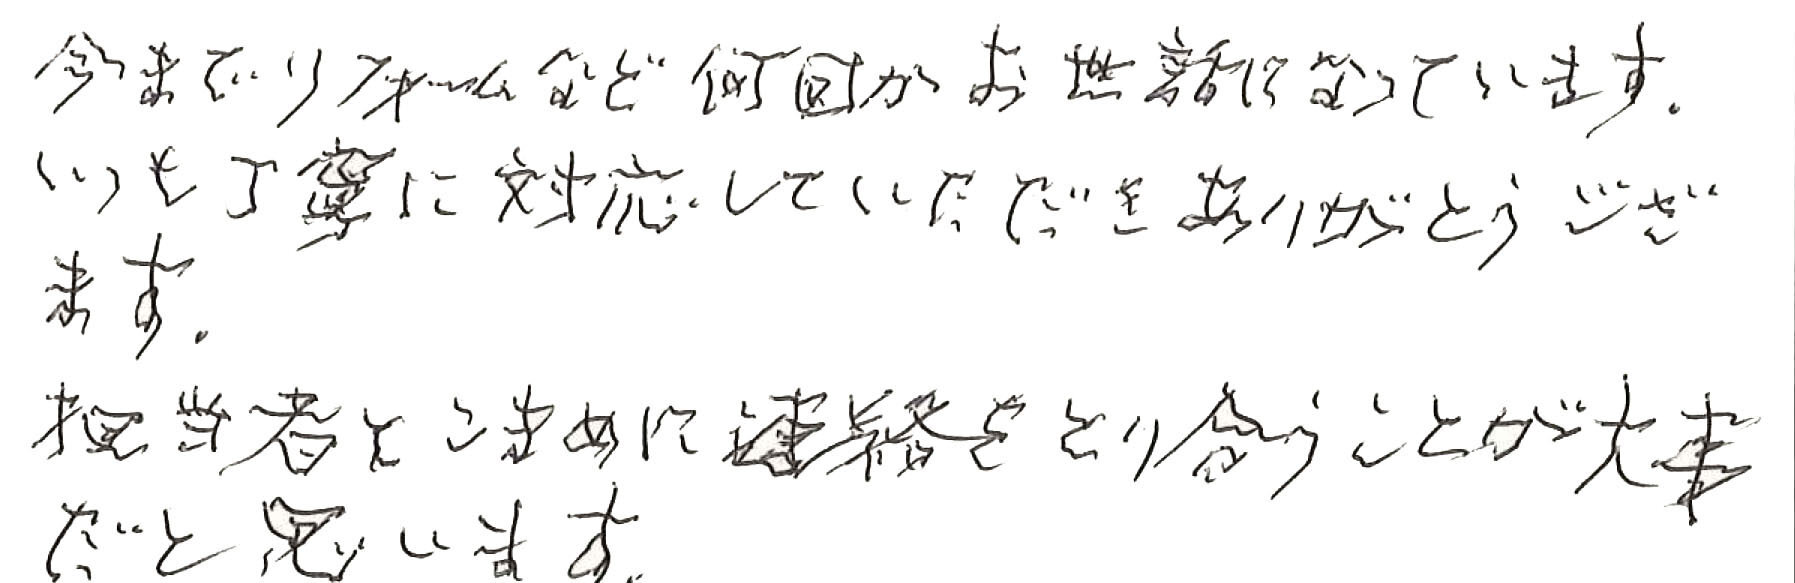 今までリフォームなど何回かお世話になっています.
いつも丁寧に対応していただきありがとうござ
ます.
担当者とこまめに連絡をとり合うことが大事
だと思います.